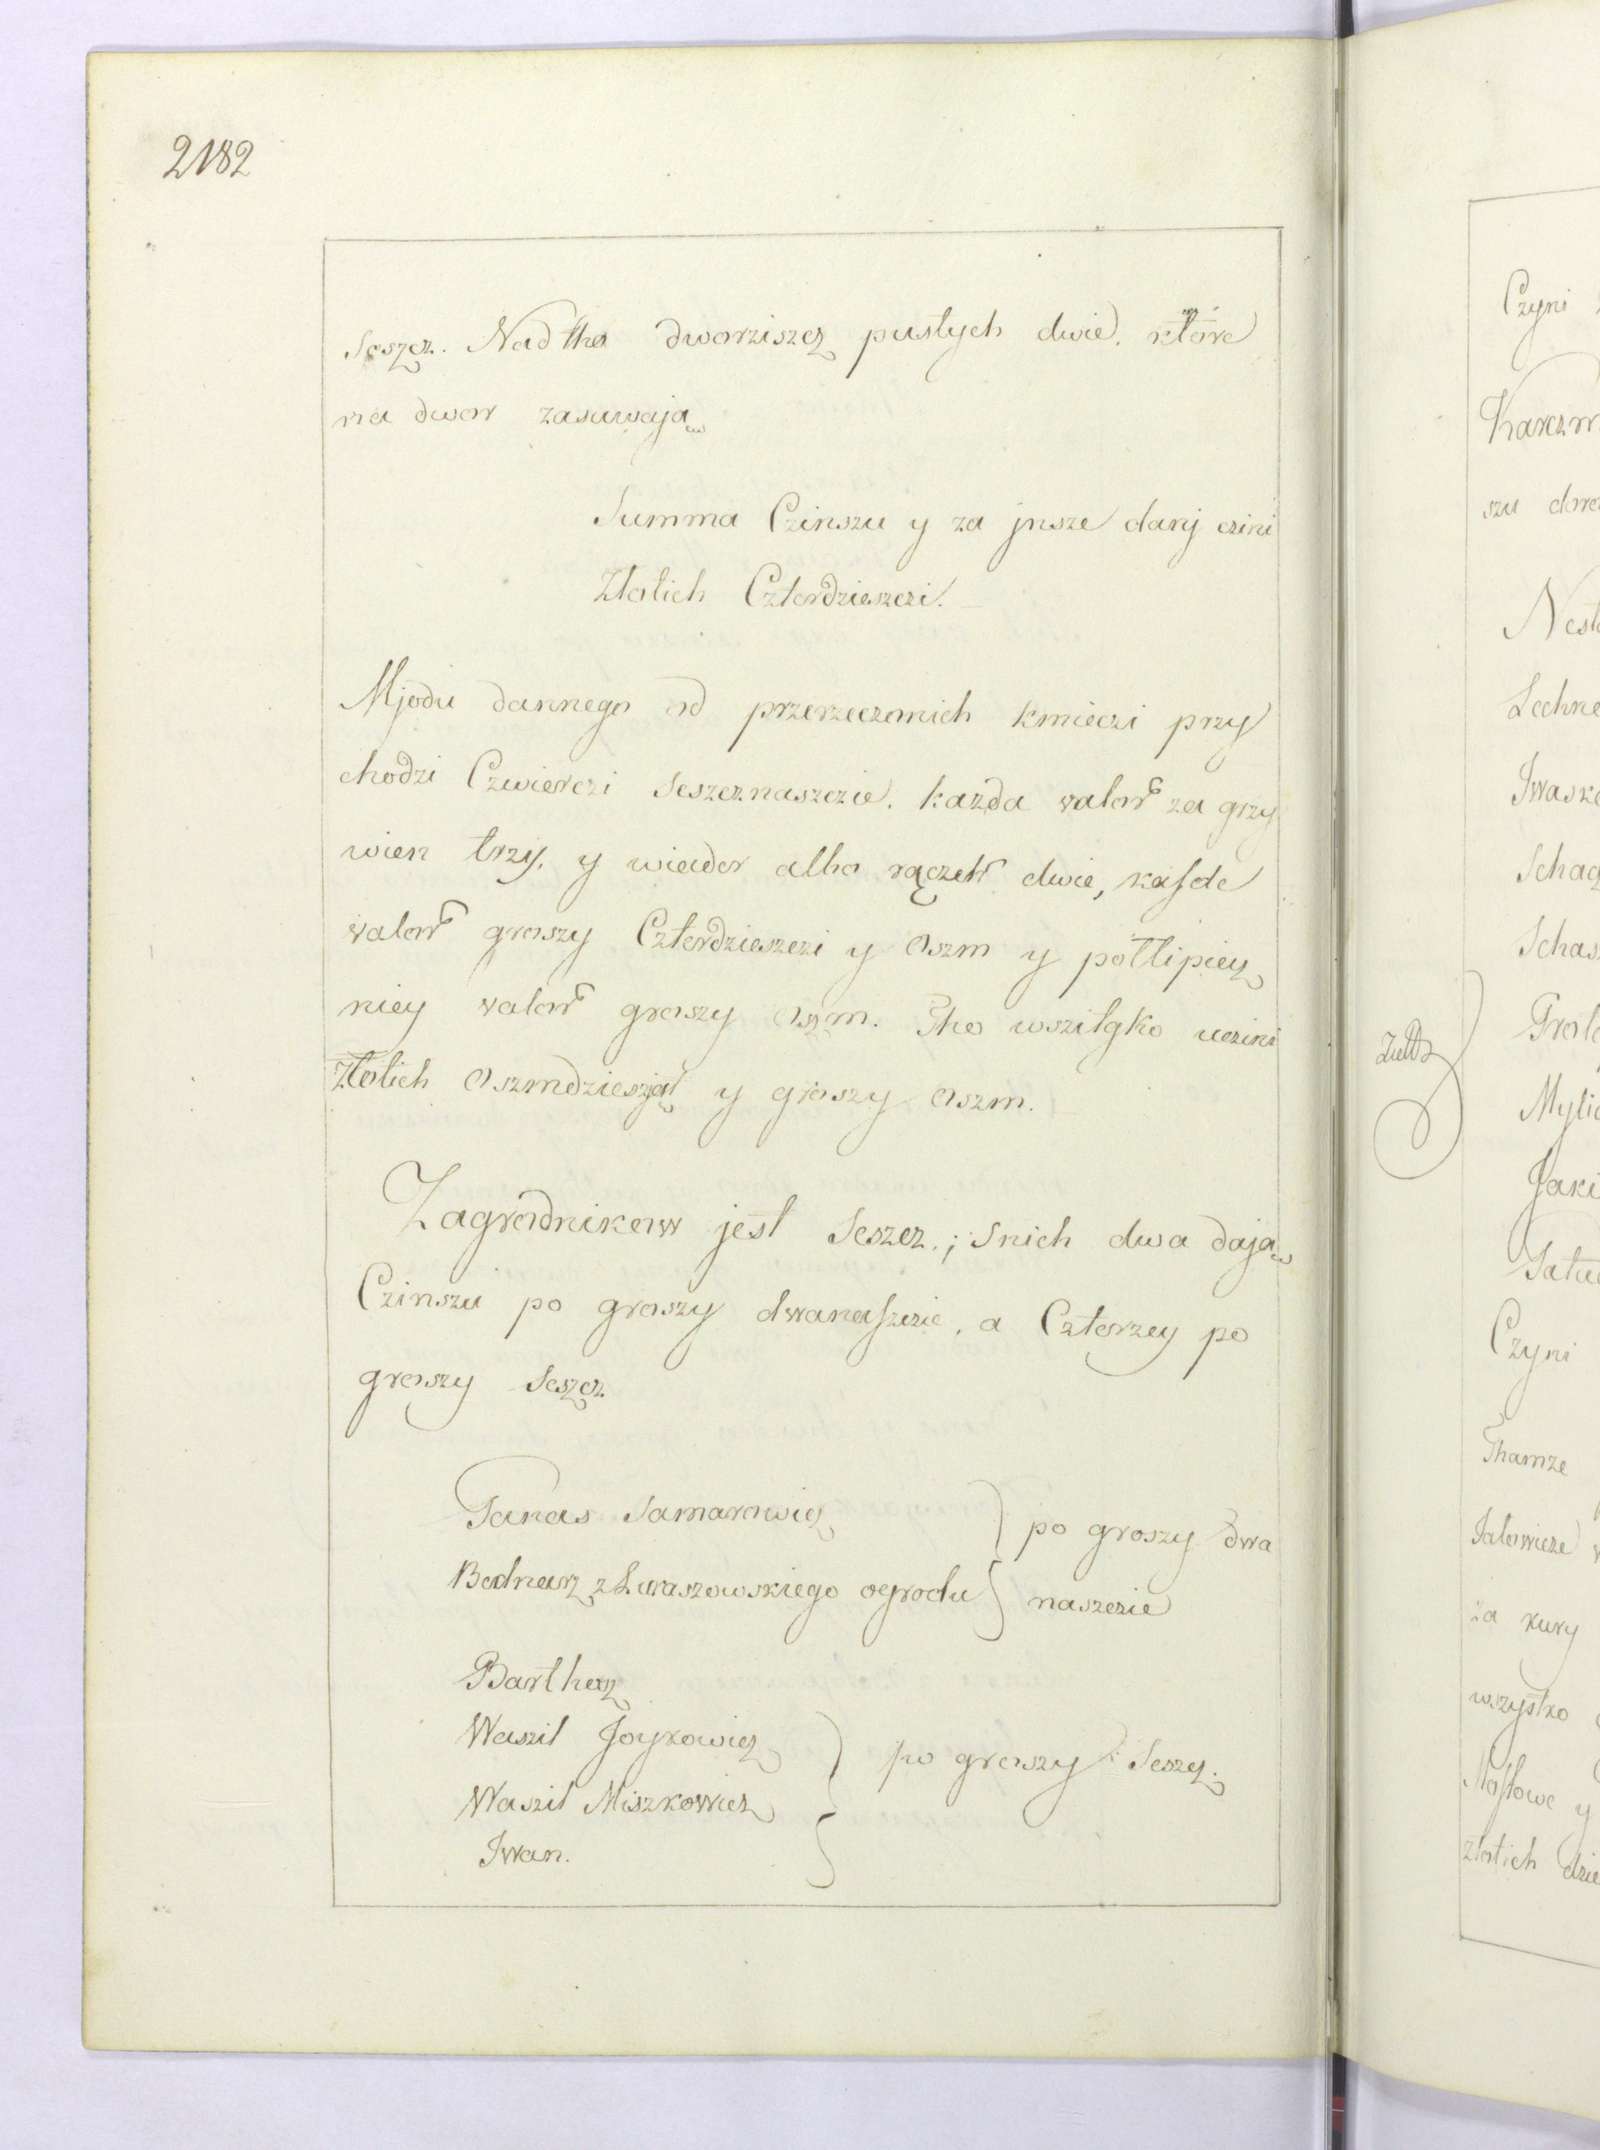 2182
Seszcz. Nad tho dworziszcz pustych dwie, które
na dwor zasuwają
Summa Czinszu y za jnsze danj czini
Złotich Czterdzieszczi.
Mjodu dannego od przerzeczonich kmieczi przy
chodzi Czwierczi Seszcznaszczie. każda valor za grzy
wien trzy. y wiader albo rączek dwie, kasde
valor groszy Czterdzieszczi y oszm y
niey valor groszy oszm. Tho wszitgko uczini
Złotich oszmdziesząt y groszy oszm.
Zagrodnikow jest Seszcz.; Snich dwa dają
Czinszu po groszy dwanaszczie, a Czterzey po
groszy Seszcz
Panas Samarowicz
po groszy dwa
Bednarz z Luraszowskiego ogrodu
naszczie
Barthosz
Waszil Joykowicz
po groszy Seszcz.
Waszil Miszkowicz
Iwan.
Czyni
Karczm
szu
Nest
Lechne
Iwask
Schac
Schas
Myli
Jaki
Czyni
Thamze
Jalowicze
za kury
wszystko
Masłowe y
złotich dzie